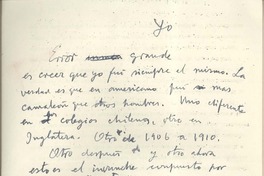 Yo
Error grande
es creer que yo fuí siempre el mismo. La
verdad es que en americano fuí más
camaleón que otros hombres. Uno diferente
en colegios chilenos, otro en
Inglaterra. Otro de 1906 a 1910.
Otro después y otro ahora
esto es el inventor compuesto por